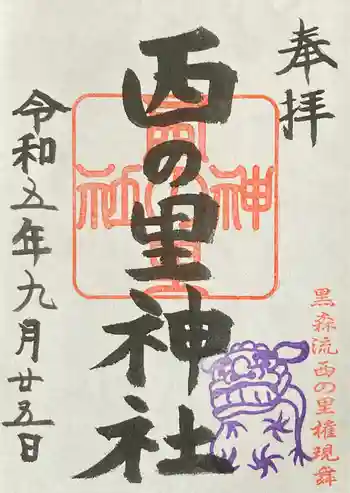 奉拝
西の里神社
令和五年九月廿五日
西の里
神
社
黒森流西の里権現舞